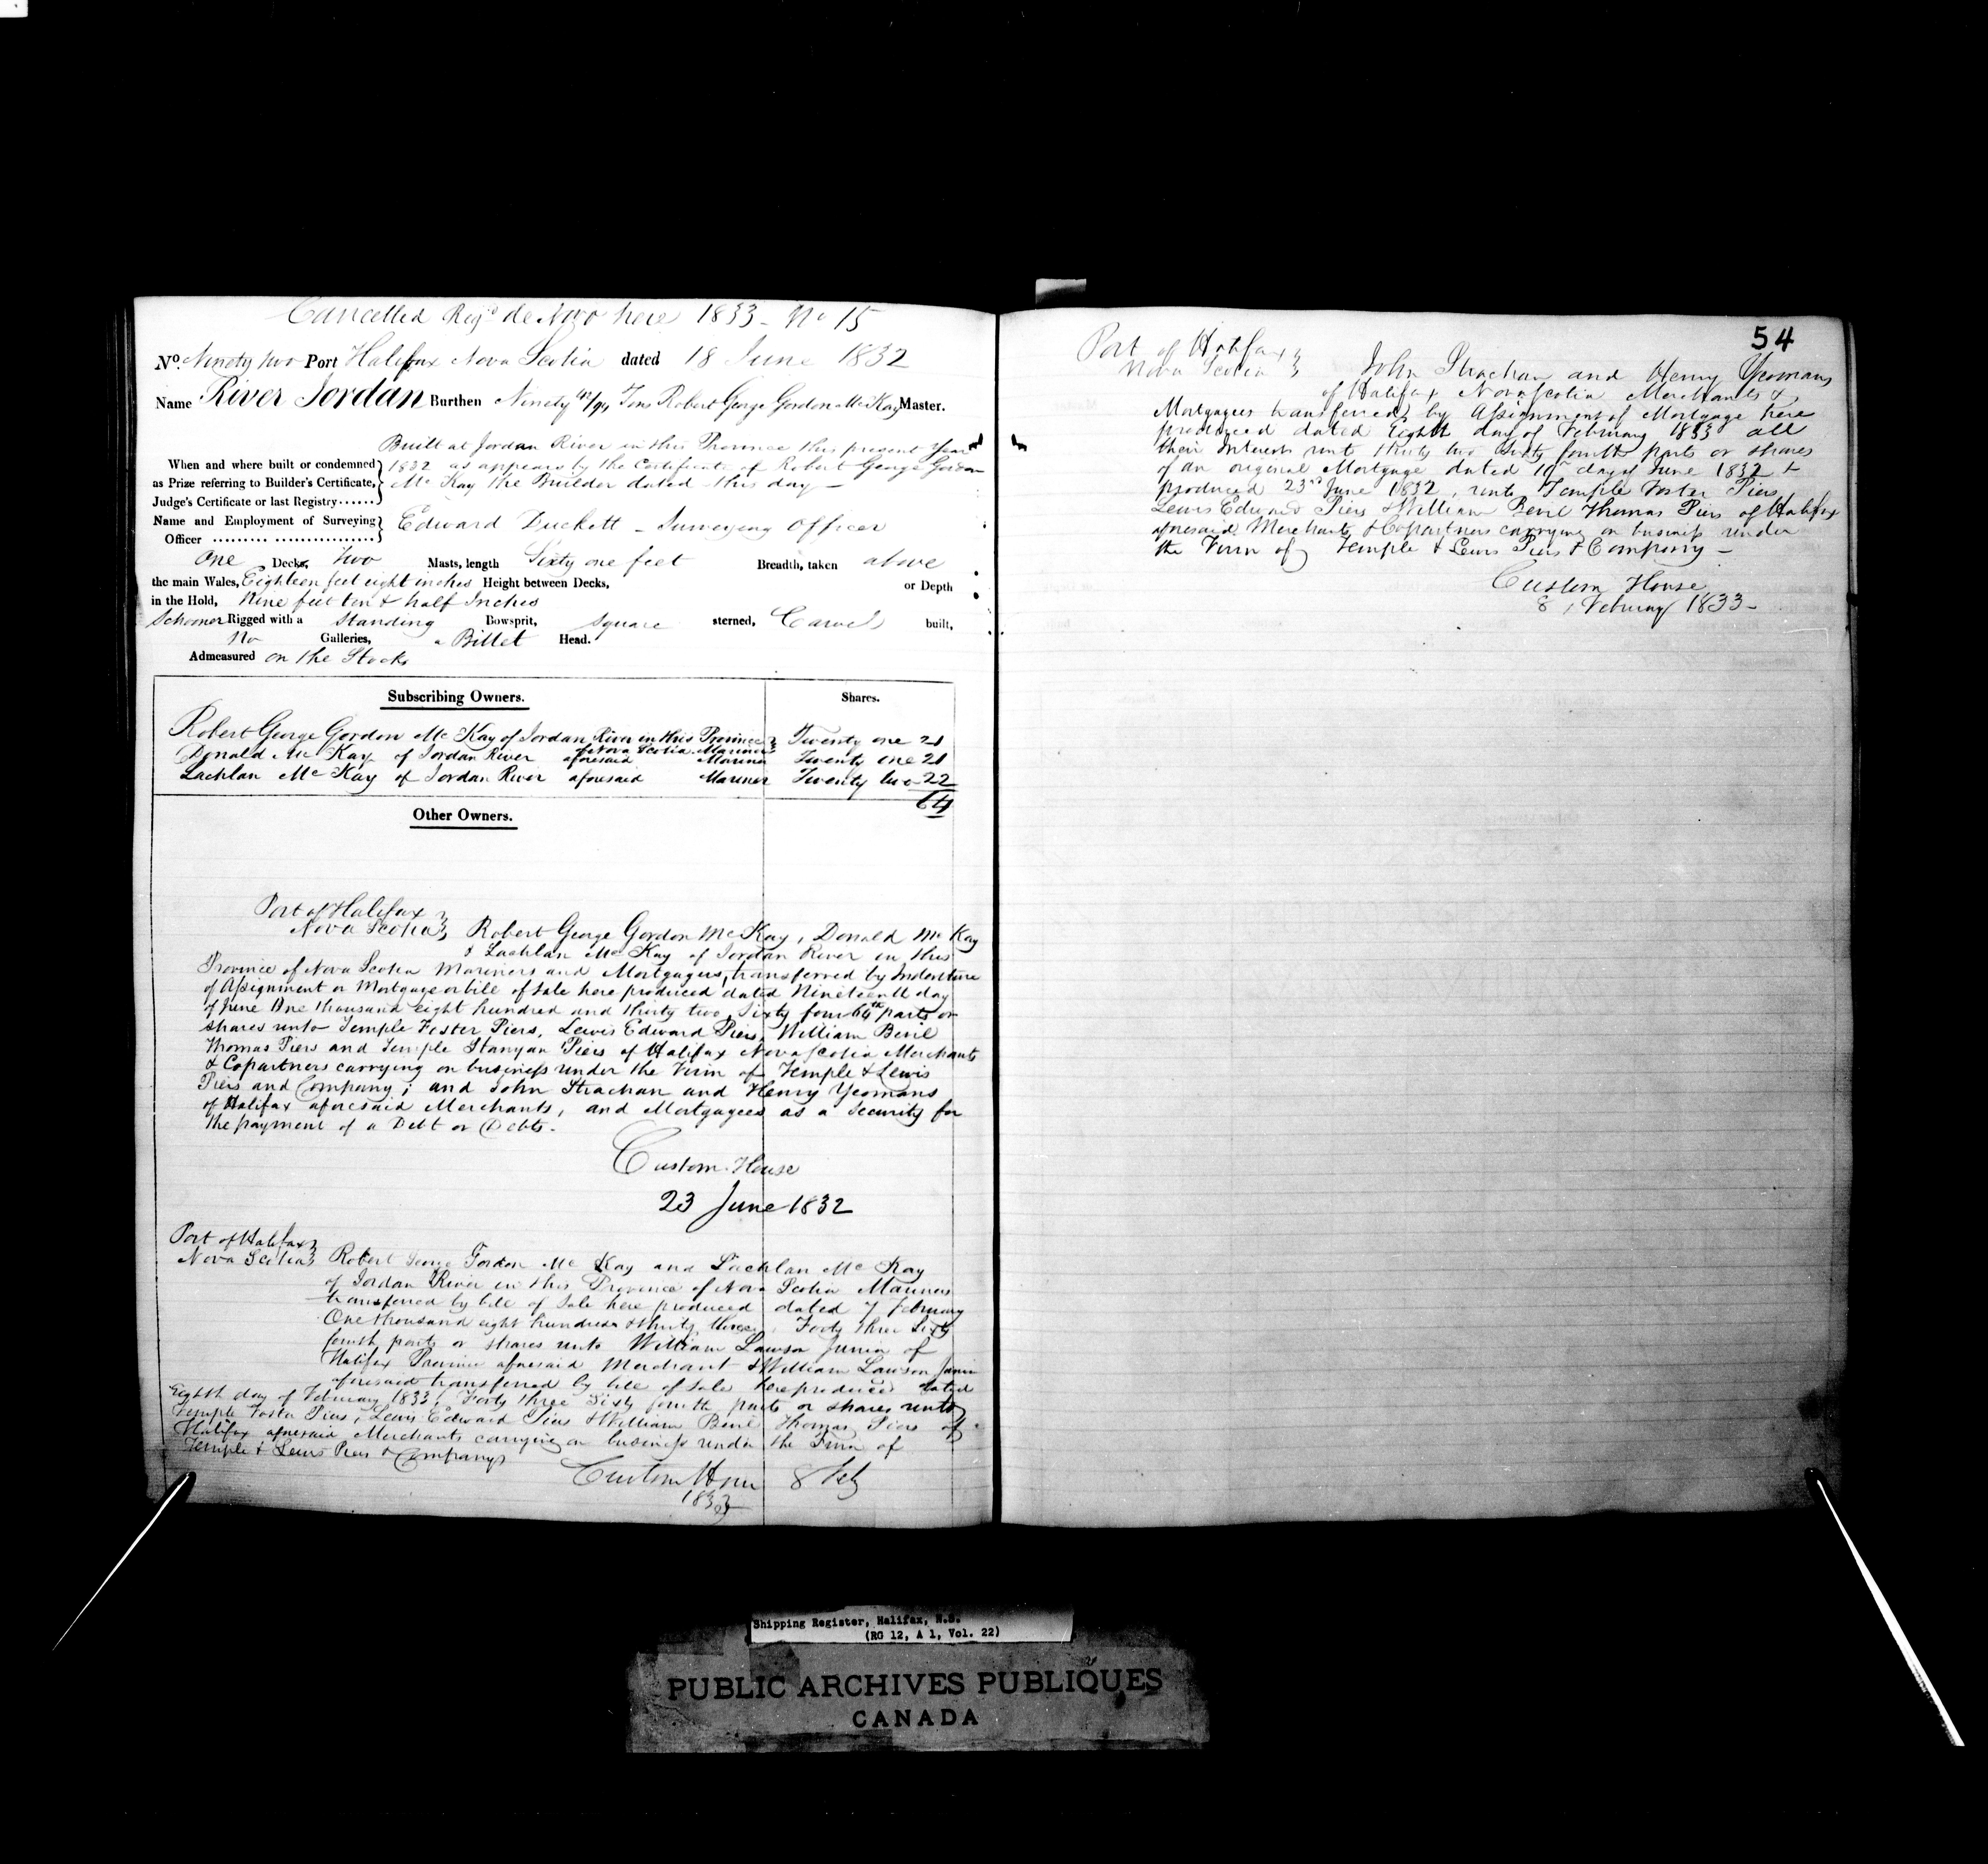 Cancelled Regd de Novo here 1833 - No 15
No. Ninety two Port Halifax Nova Scotia dated 18 June 1832
Name River Jordan Burthen Ninety Tons Robert George Gordon McKay Master.
Built at Jordan River in this Province this present Year
When and where built or condemned 1832 as appears by the Certificate of Robert George Gordon
as Prize referring to Builder's Certificate, Mc Kay the Builder dated this day -
Judge's Certificate or last Registry......
Name and Employment of Surveying Edward Duckett - Surveying Officer
Officer ......... ...............
One Decks, Two Masts, length Sixty one feet Breadth, taken above
the main Wales, Eighteen feet eight inches Height between Decks, or Depth
in the Hold, Nine feet ten & half Inches
Schooner Rigged with a Standing Bowsprit, Square sterned, Carvel built,
No Galleries, a Billet Head.
Admeasured on the Stocks
Subscribing Owners. Shares.
Robert George Gordon Mc Kay of Jordan River in this Province Twenty one 21
of Nova Scotia Mariner
Donald Mc Kay of Jordan River aforesaid Mariner Twenty one 21
Lachlan Mc Kay of Jordan River aforesaid Mariner Twenty two 22
64
Other Owners.
Port of Halifax
Nova Scotia Robert George Gordon Mc Kay, Donald Mc Kay
& Lachlan Mc Kay of Jordan River in this
Province of Nova Scotia Mariners and Mortgagers, transferred by Indenture
of Assignment or Mortgage or bile of Sale here produced dated Nineteenth day
of June One thousand eight hundred and thirty two, Sixty four 64th parts or
shares unto Temple Foster Piers, Lewis Edward Piers, William Bevil
Thomas Piers and Temple Stanyan Piers of Halifax Nova Scotia Merchants
& Copartners carrying on business under the Firm of Temple & Lewis
Piers and Company; and John Strachan and Henry Yeomans
of Halifax aforesaid Merchants, and Mortgagees as a Security for
the payment of a Debt or Debts.
Custom House
23 June 1832
Port of Halifax
Nova Scotia Robert George Gordon Mc Kay and Lachlan Mc Kay
of Jordan River in this Province of Nova Scotia Mariners
transferred by bile of Sale here produced dated 7 February
One thousand eight hundred & thirty three, Forty three Sixty
fourth parts or shares unto William Lawson Junior of
Halifax Province aforesaid Merchant & William Lawson Junior
aforesaid transferred by bile of Sale here produced dated
Eighth day of February 1833, Forty three Sixty fourth parts or shares unto
Temple Foster Piers, Lewis Edward Piers & William Bevil Thomas Piers of
Halifax aforesaid Merchants carrying on business under the Firm of
Temple & Lewis Piers & Company
Custom House 8 Feby
1833
54
Port of Halifax
Nova Scotia John Strachan and Henry Yeomans
of Halifax Nova Scotia Merchants &
Mortgagees transferred by Assignment of Mortgage here
produced dated Eighth day of February 1833 all
their Interest unto thirty two Sixty fourth parts or shares
of an original Mortgage dated 19th day of June 1832 &
produced 23rd June 1832, unto Temple Foster Piers,
Lewis Edward Piers & William Bevil Thomas Piers of Halifax
aforesaid Merchants & Copartners carrying on business under
the Firm of Temple & Lewis Piers & Company -
Custom House
8, February 1833 -
Shipping Register, Halifax, N.S.
(RG 12, A 1, Vol. 22)
PUBLIC ARCHIVES PUBLIQUES
CANADA